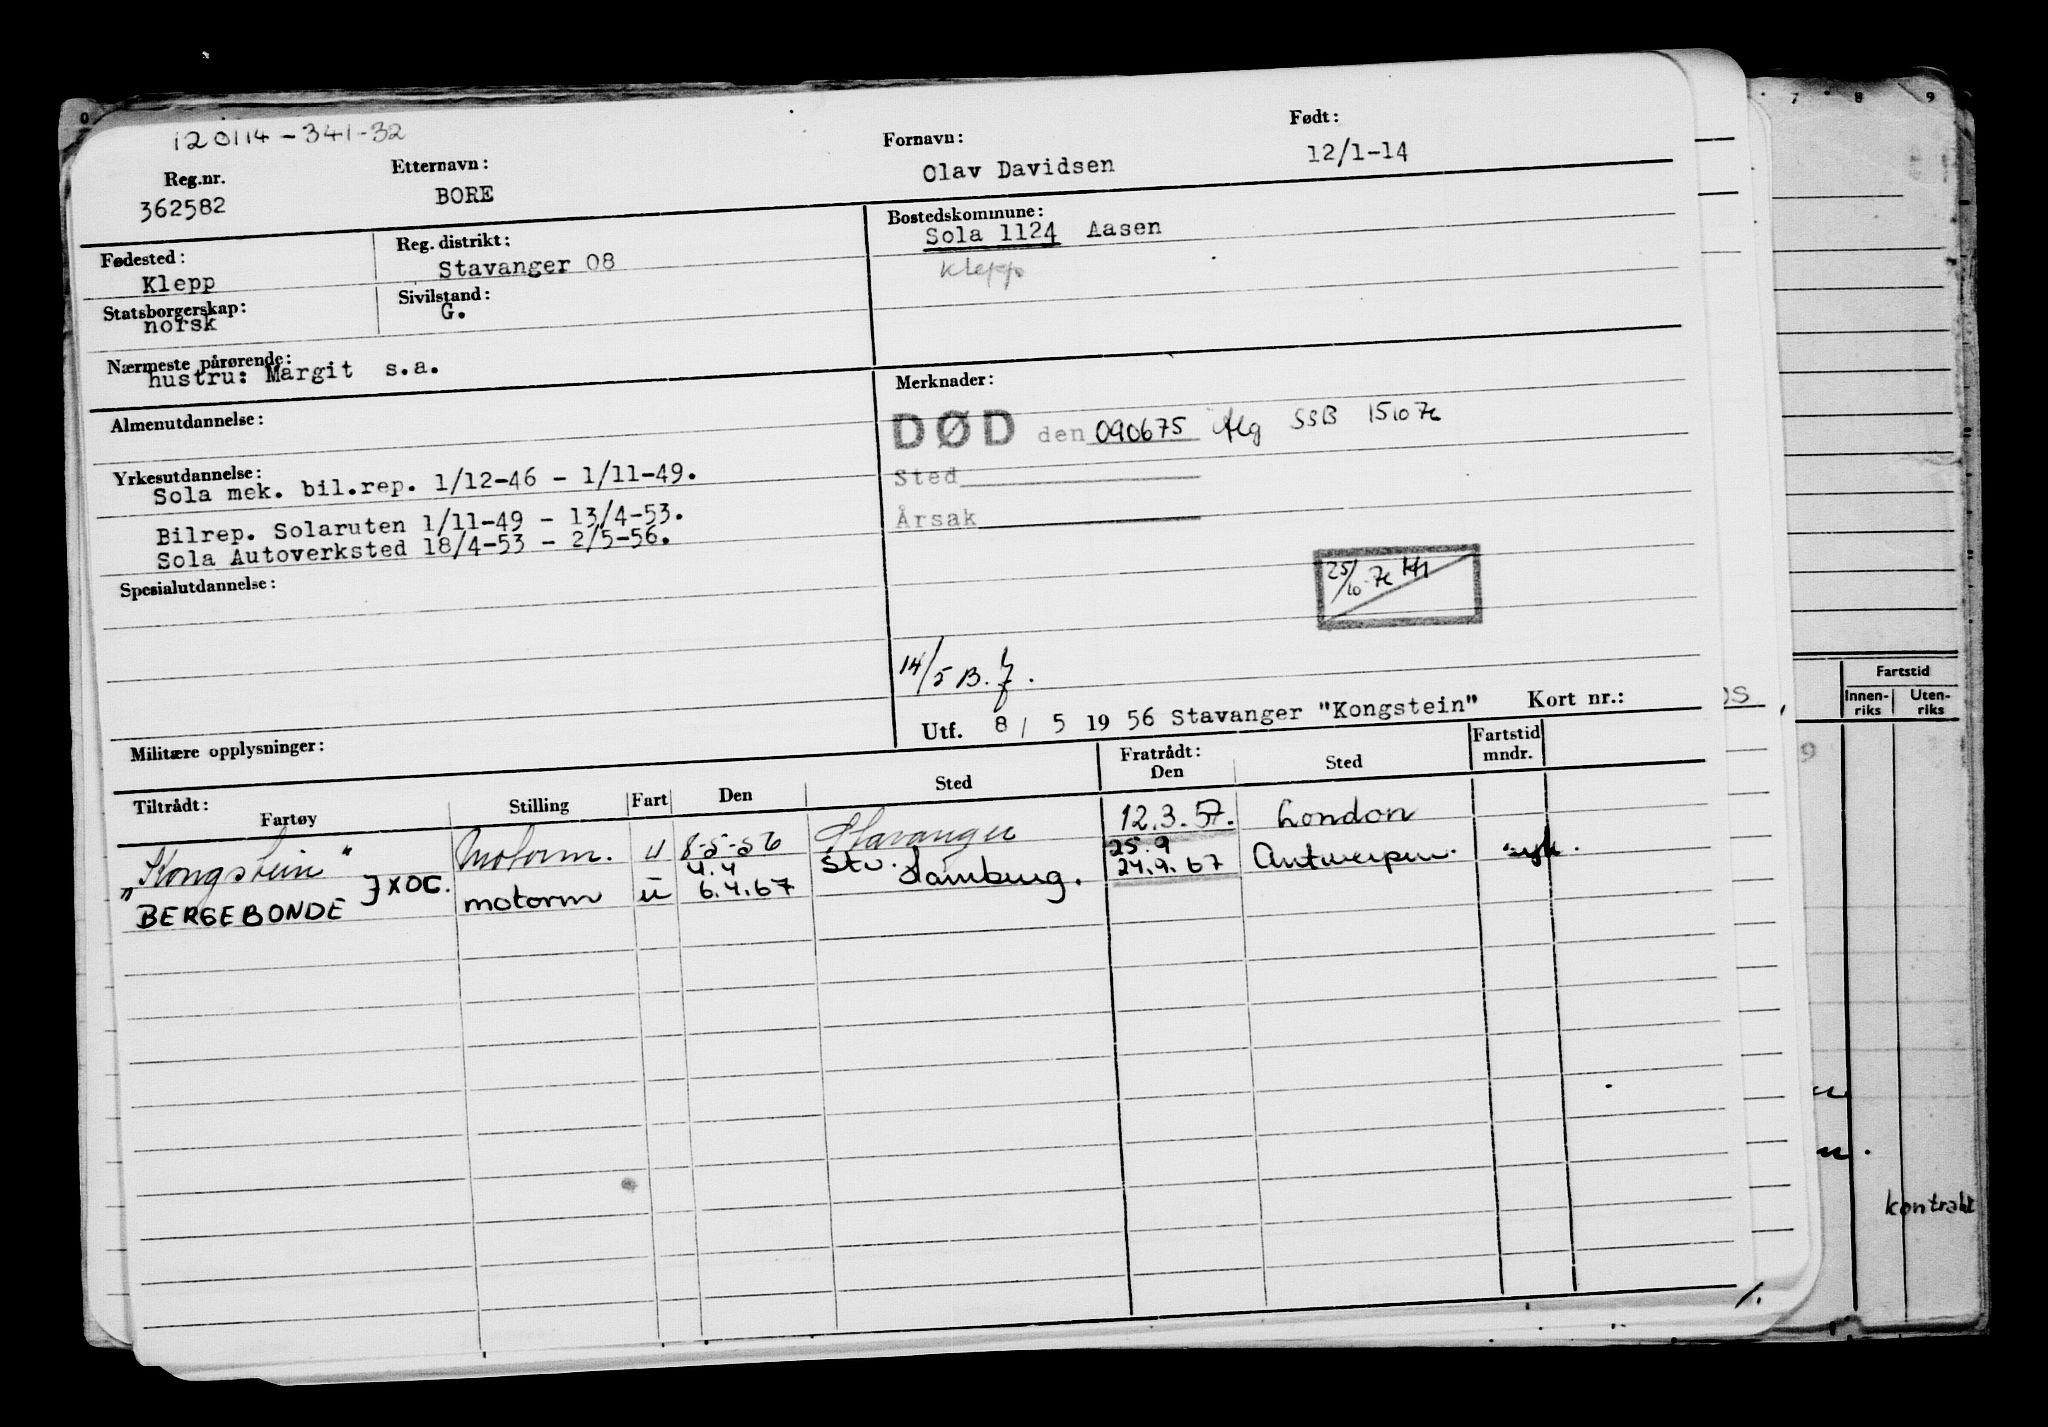 120114-341-32
Reg.nr. Etternavn: Fornavn: Født:
362582 BORE Olav Davidsen 12/1-14
Fødested: Reg. distrikt: Bostedskommune:
Klepp Stavanger 08 Sola 1124 Aasen
Klepp
Statsborgerskap: Sivilstand:
norsk G.
Nærmeste pårørende:
hustru: Margit s.a.
Almenutdannelse:
Yrkesutdannelse:
Sola mek. bil.rep. 1/12-46 - 1/11-49.
Bilrep. Solaruten 1/11-49 - 13/4-53.
Sola Autoverksted 18/4-53 - 2/5-56.
Spesialutdannelse:
Militære opplysninger:
Merknader:
DØD den 090675 SSB 151076
Sted
Årsak
25/10-76
14/5 B.
Utf. 8 / 5 19 56 Stavanger "Kongstein" Kort nr.:
Tiltrådt: Fratrådt: Fartstid
Fartøy Stilling Fart Den Sted Den Sted mndr.
"Kongstein" Motorm. u 8-5-56 Stavanger 12.3.57. London
4.4 Stv. 25.9
BERGEBONDE JXOC. motorm u 6.4.67 Hamburg. 24.9.67 Antwerpen. syk.
7 8 9
Fartstid
Innenriks Utenriks
kontrakt